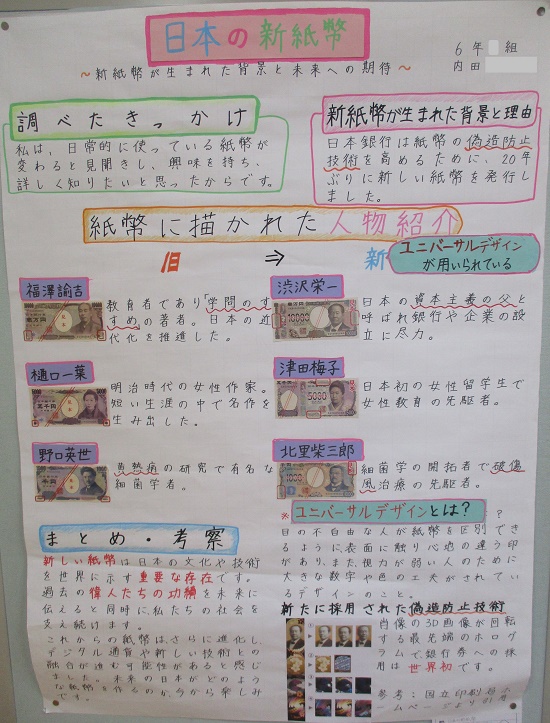 日本の新紙幣
～新紙幣が生まれた背景と未来への期待～
6年 組
内田
調べたきっかけ
私は、日常的に使っている紙幣が
変わると見聞きし、興味を持ち、
詳しく知りたいと思ったからです。
新紙幣が生まれた背景と理由
日本銀行は紙幣の偽造防止
技術を高めるために、20年
ぶりに新しい紙幣を発行し
ました。
紙幣に描かれた人物紹介
旧 ⇒ 新
ユニバーサルデザイン
が用いられている
福澤諭吉
教育者であり「学問のす
すめ」の著者。日本の近
代化を推進した。
渋沢栄一
10000
日本の資本主義の父と
呼ばれ銀行や企業の設
立に尽力。
樋口一葉
明治時代の女性作家。
短い生涯の中で名作を
生み出した。
津田梅子
5000
日本初の女性留学生で
女性教育の先駆者。
野口英世
黄熱病の研究で有名な
細菌学者。
北里柴三郎
1000
細菌学の開拓者で破傷
風治療の先駆者。
まとめ・考察
新しい紙幣は日本の文化や技術
を世界に示す重要な存在です。
過去の偉人たちの功績を未来に
伝えると同時に、私たちの社会を
支え続けます。
これからの紙幣は、さらに進化し、
デジタル通貨や新しい技術との
融合が進む可能性があると感じ
ました。未来の日本がどのよう
な紙幣を作るのか、今から楽しみ
です。
※ユニバーサルデザインとは？
?
目の不自由な人が紙幣を区別でき
るように、表面に触り心地の違う印
があり、また、視力が弱い人のために
大きな数字や色の工夫がされてい
るデザインのこと。
新たに採用された偽造防止技術
肖像の3D画像が回転
する最先端のホログ
ラムで、銀行券への採
用は世界初です。
参考：国立印刷局ホ
ームページより引用